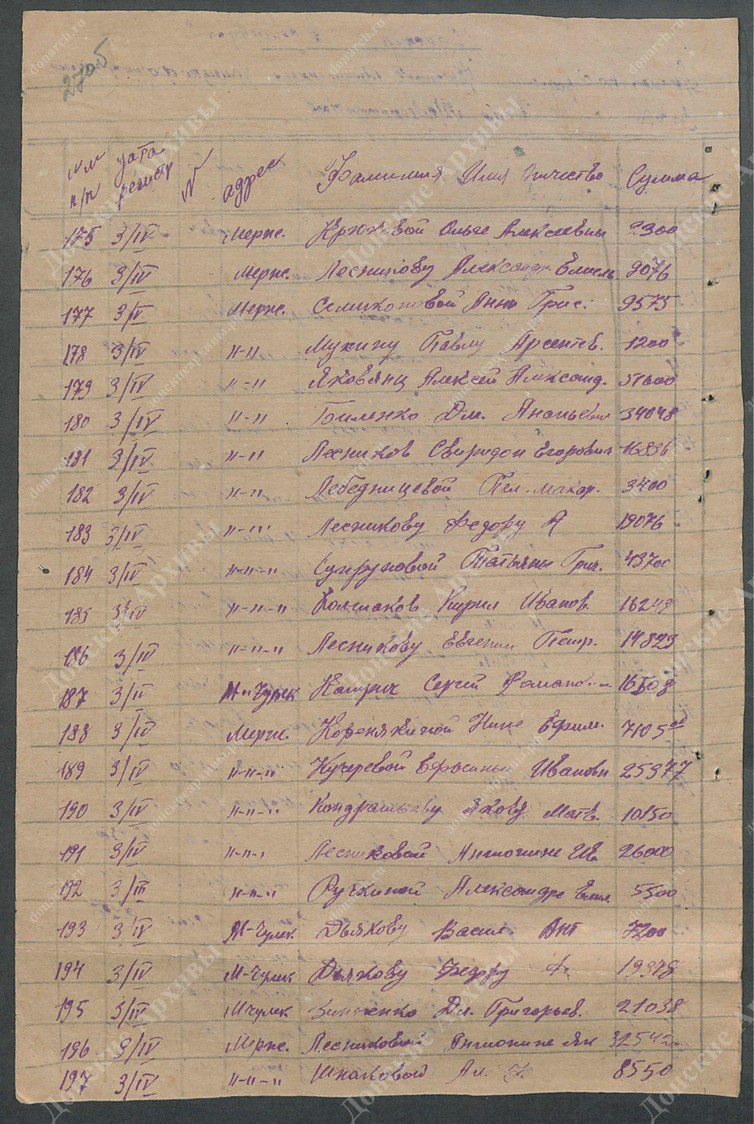 2705
№№ п/п дата регистр № адрес Фамилия Имя Отчество Сумма
175 3/IV Мержс. Ольге Алексеевны 9300
176 3/IV Мержс. Лесникову Александр. Емель. 9076
177 3/IV Мержс. Семикоповой Анне Григ. 9575
178 3/IV "-" Мухину Павлу Арсентев. 1200
179 3/IV "-" Яковянц Алексей Александ.
180 3/IV "-" Биленко Дм. Ананьевич 34048
181 3/IV "-" Лесников Свиридон Егорович 16836
182 3/IV "-" Лебедницевой Пел. Макар. 3400
183 3/IV "-" Лесникову Федору А 19076
184 3/IV "-"-" Супруновой Татьяны Григ. 43700
185 3/IV "-"-" Колпаков Кирил Иванов. 16249
186 3/IV "-"-" Лесникову Евгении Петр. 14823
187 3/IV М-Чулек Сергей Романович 16508
188 3/IV Мержс. Нине Ефим. 7105
189 3/IV "-"-" Кучеревой Ефросиньи Ивановн 25377
190 3/IV "-"-" Кондрашову Якову Матв. 10150
191 3/IV "-"-" Лесниковой Антонине Ив 26000
192 3/III "-"-" Ручкиной Александре Емел. 5500
193 3/IV М-Чулек Дьякову Васил. Ант 7200
194 3/IV М-Чулек Дьякову Ф. 19378
195 3/IV М чулек Зинченко Дм. Григорьев. 21038
196 3/IV Мержс. Лесниковой Антонине Як 32542
197 3/IV "-"-" Шпаковой Ал. 8550